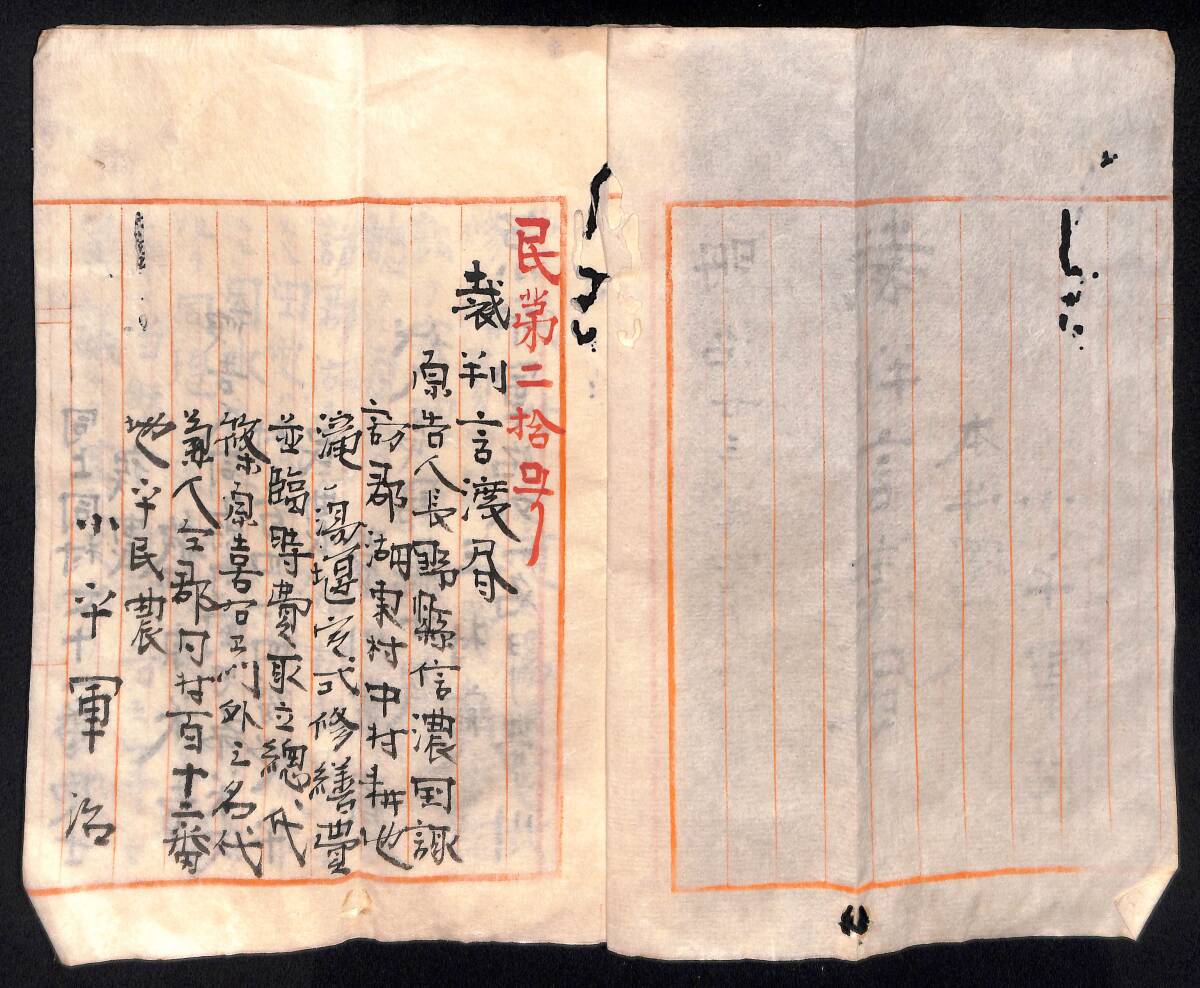 民第二拾号
裁判言渡書
原告人長野縣信濃国諏
訪郡湖東村中村耕地
滝ノ湯堰定式修繕費
並臨時費取立總代
篠原喜右エ門外三名代
兼人仝郡同村百十三番
地平民農
小平軍治